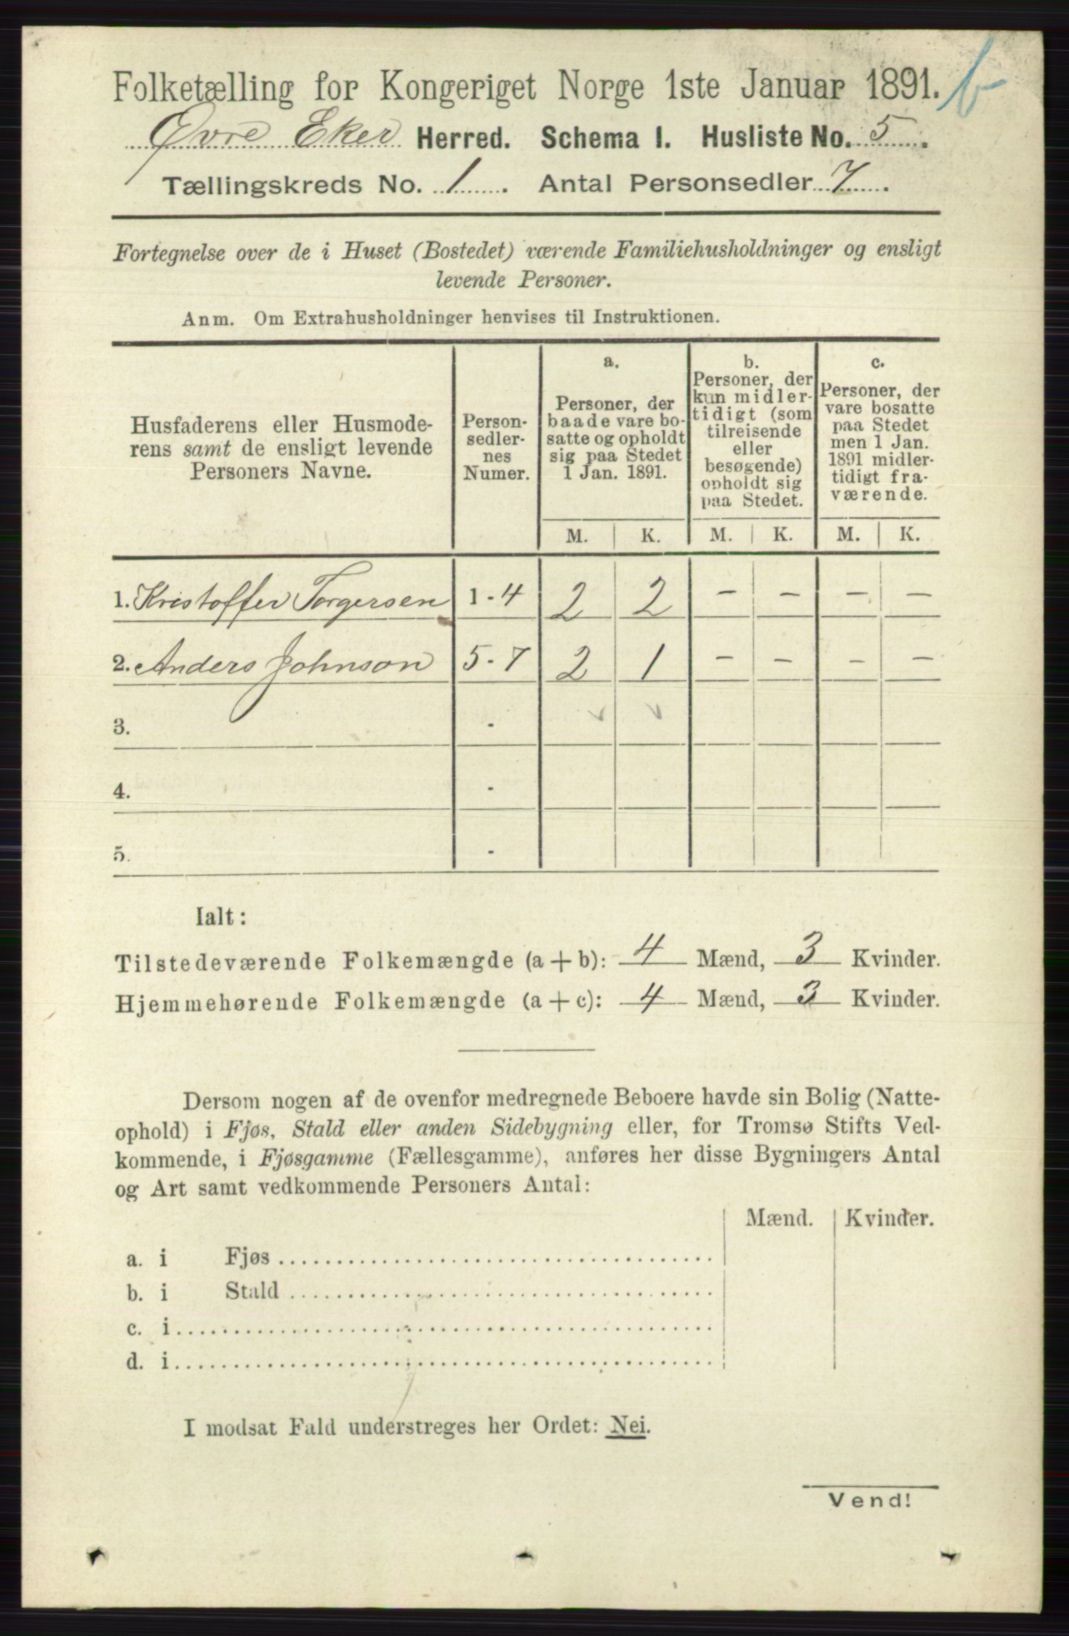 Folketælling for Kongeriget Norge 1ste Januar 1891.
b
Øvre Eker Herred. Schema I. Husliste No. 5.
Tællingskreds No. 1. Antal Personsedler 7.
Fortegnelse over de i Huset (Bostedet) værende Familiehusholdninger og ensligt
levende Personer.
Anm. Om Extrahusholdninger henvises til Instruktionen.
Husfaderens eller Husmode-
rens samt de ensligt levende
Personers Navne.
Person-
sedler-
nes
Numer.
a.
Personer, der
baade vare bo-
satte og opholdt
sig paa Stedet
1 Jan. 1891.
b.
Personer, der
kun midler-
tidigt (som
tilreisende
eller
besøgende)
opholdt sig
paa Stedet.
c.
Personer, der
vare bosatte
paa Stedet
men 1 Jan.
1891 midler-
tidigt fra-
værende.
M. K. M. K. M. K.
1. Kristoffer Torgersen 1-4 2 2 - - - -
2. Anders Johnson 5-7 2 1 - - - -
3. -
4. -
5. -
Ialt:
Tilstedeværende Folkemængde (a+b): 4 Mænd, 3 Kvinder.
Hjemmehørende Folkemængde (a+c): 4 Mænd, 3 Kvinder.
Dersom nogen af de ovenfor medregnede Beboere havde sin Bolig (Natte-
ophold) i Fjøs, Stald eller anden Sidebygning eller, for Tromsø Stifts Ved-
kommende, i Fjøsgamme (Fællesgamme), anføres her disse Bygningers Antal
og Art samt vedkommende Personers Antal:
Mænd. Kvinder.
a. i Fjøs
b. i Stald
c. i
d. i
I modsat Fald understreges her Ordet: Nei.
Vend!